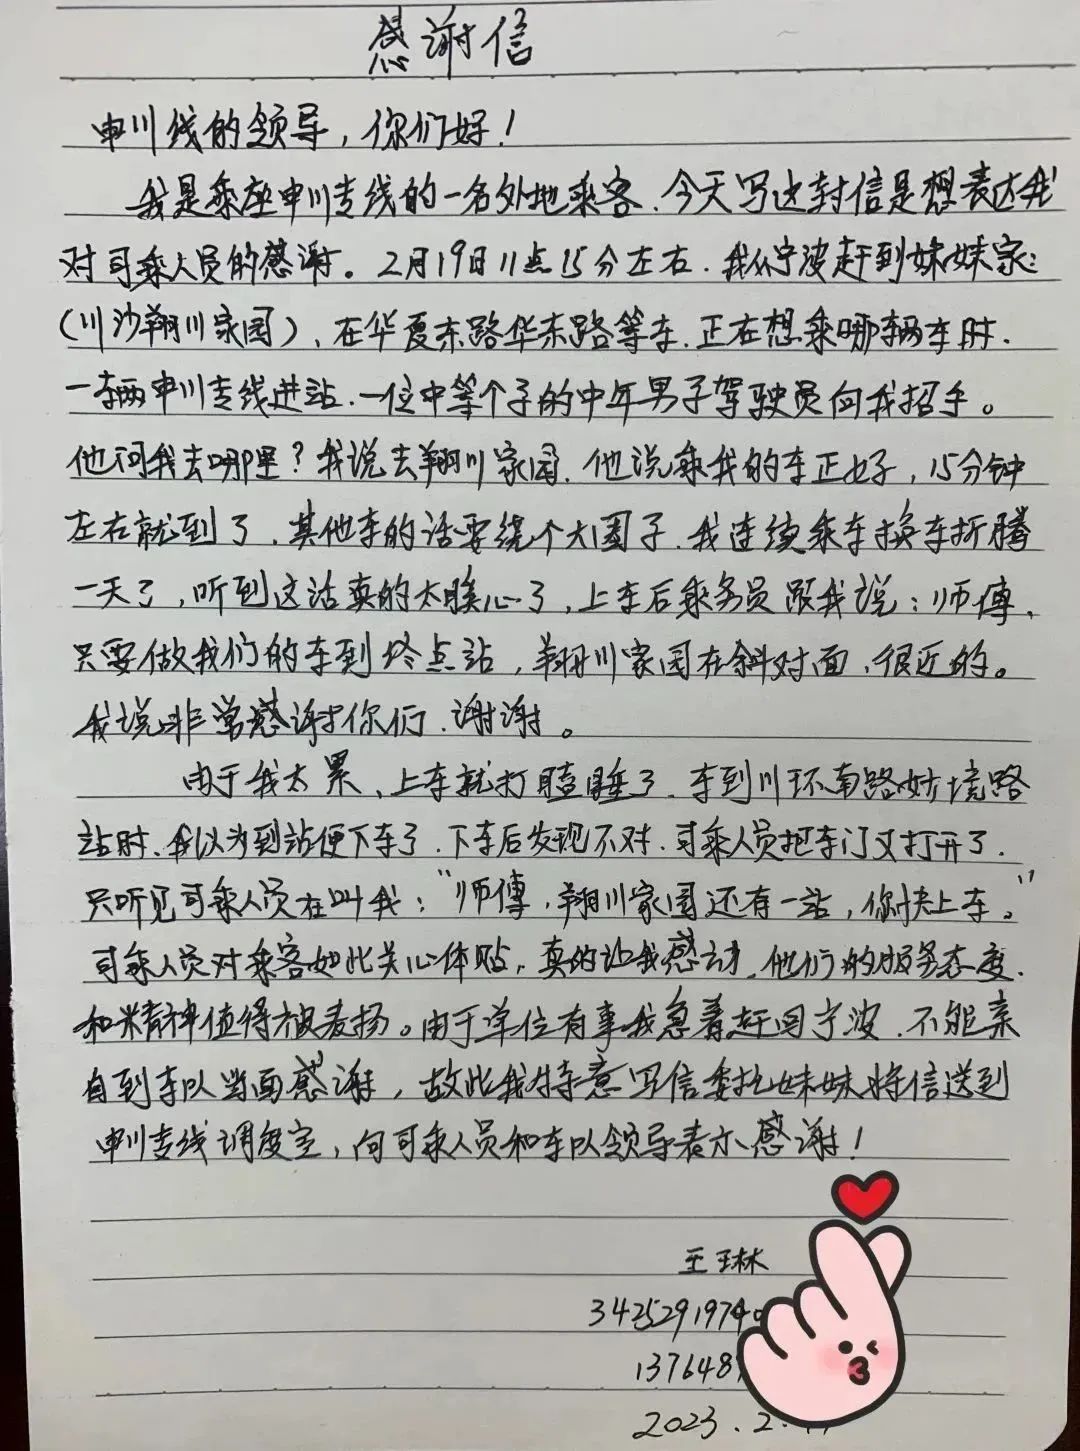 感谢信
申川线的领导，你们好！
我是乘座申川专线的一名外地乘客.今天写这封信是想表达我
对司乘人员的感谢。2月19日11点15分左右.我从宁波赶到妹妹家：
（川沙翔川家园）、在华夏东路华东路等车.正在想乘哪辆车时.
一辆申川专线进站.一位中等个子的中年男子驾驶员向我招手。
他问我去哪里？我说去翔川家园.他说乘我的车正好，15分钟
左右就到了.其他车的话要绕个大圈子.我连续乘车换车折腾
一天了，听到这话真的太暖心了，上车后乘务员跟我说：师傅、
只要做我们的车到终点站，翔川家园在斜对面.很近的。
我说非常感谢你们.谢谢。
由于我太累、上车就打瞌睡了.车到川环南路妙境路
站时.我以为到站便下车了.下车后发现不对.司乘人员把车门又打开了.
只听见司乘人员在叫我：“师傅，翔川家园还有一站，你快上车。”
司乘人员对乘客如此关心体贴.真的让我感动.他们的服务态度.
和精神值得被表扬。由于单位有事我急着赶回宁波.不能亲
自到车队当面感谢，故此我特意写信委托妹妹将信送到
申川专线调度室，向司乘人员和车队领导表示感谢！
王琳
3425291974
137648
2023.2.